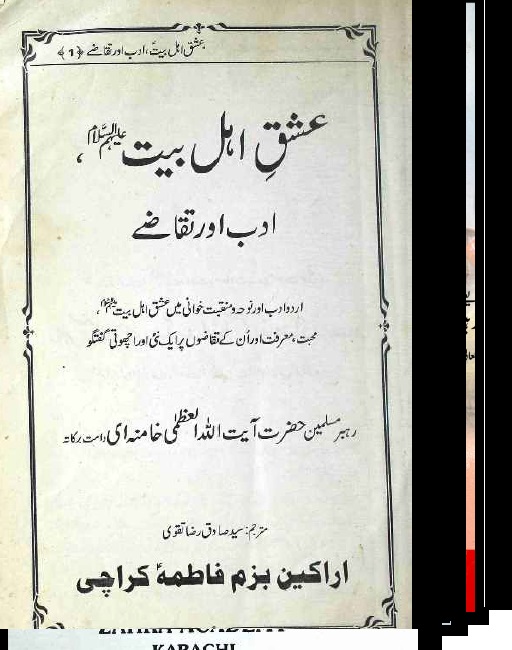 عشق اہل بیتؑ، ادب اور تقاضے ﴿1﴾
عشقِ اہل بیت علیہم السلام،
ادب اور تقاضے
اردو ادب اور نوحہ و منقبت خوانی میں عشق اہل بیت علیہم السلام،
محبت، معرفت اور اُن کے تقاضوں پر ایک نئی اور اچھوتی گفتگو
رہبر مسلمین حضرت آیت اللہ العظمٰی خامنہ ای دامت برکاتہ
مترجم: سید صادق رضا تقوی
اراکین بزم فاطمہؑ کراچی
KARACHI